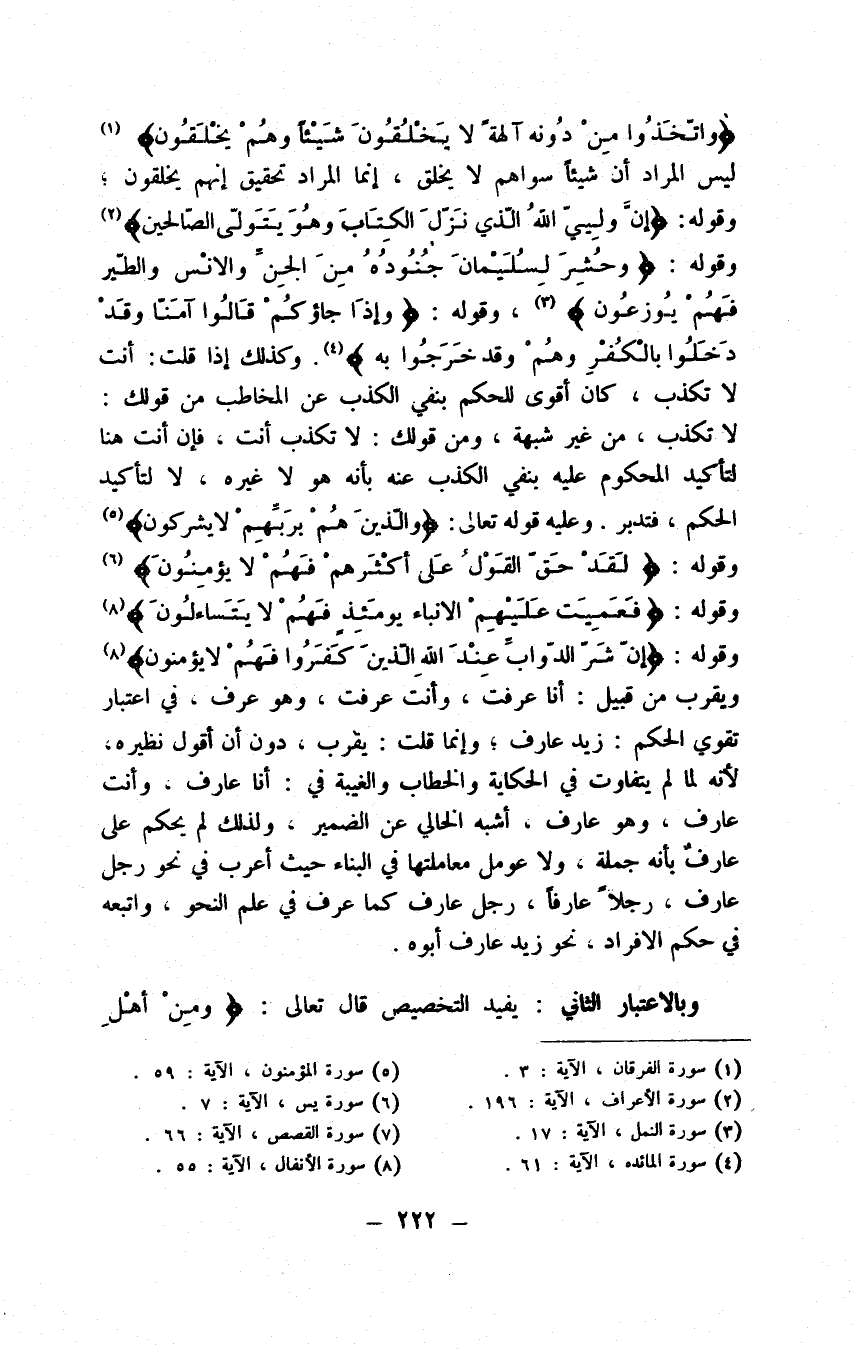 ﴿واتّخَذُوا مِنْ دُونه آلهةً لا يَخْلُقُونَ شَيْئاً وهُمْ يخْلَقُون﴾ (١)
ليس المراد أن شيئاً سواهم لا يخلق ، إنما المراد تحقيق إنهم يخلقون ؛
وقوله: ﴿إنَّ ولِييّ اللهُ الّذي نَزّلَ الكِتابَ وهُوَ يَتَولّى الصّالحين﴾(٢)
وقوله : ﴿ وحُشِرَ لِسُلَيْمانَ جُنُودُهُ مِنَ الجِنِّ والانْس والطّير
فَهُمْ يُوزعُون ﴾ (٣) ، وقوله : ﴿ وإذَا جاؤكُمْ قَالُوا آمَنّا وقَدْ
دَخَلُوا بالْكُفْرِ وهُمْ وقد خَرَجُوا به ﴾(٤). وكذلك إذا قلت: أنت
لا تكذب ، كان أقوى للحكم بنفي الكذب عن المخاطب من قولك :
لا تكذب ، من غير شبهة ، ومن قولك : لا تكذب أنت ، فإن أنت هنا
لتأكيد المحكوم عليه بنفي الكذب عنه بأنه هو لا غيره ، لا لتأكيد
الحكم ، فتدبر . وعليه قوله تعالى: ﴿والّذينَ هُمْ بربَّهِمْ لايشركون﴾(٥)
وقوله : ﴿ لَقَدْ حَقّ القَوْلُ عَلى أكْثَرهمْ فَهُمْ لا يؤمِنُونَ﴾ (٦)
وقوله : ﴿ فَعَمِيَت عَلَيْهِمْ الانباء يومَئِذٍ فهُمْ لا يَتَساءلُونَ ﴾(٨)
وقوله : ﴿إنّ شَرّ الدّوابِّ عِنْدَ اللهِ الّذينَ كَفَرُوا فَهُمْ لايؤمنون﴾(٨)
ويقرب من قبيل : أنا عرفت ، وأنت عرفت ، وهو عرف ، في اعتبار
تقوي الحكم : زيد عارف ؛ وإنما قلت : يقرب ، دون أن أقول نظيره،
لأنه لما لم يتفاوت في الحكاية والخطاب والغيبة في : أنا عارف ، وأنت
عارف ، وهو عارف ، أشبه الخالي عن الضمير ، ولذلك لم يحكم على
عارفٌ بأنه جملة ، ولا عومل معاملتها في البناء حيث أعرب في نحو رجل
عارف ، رجلاً عارفاً ، رجل عارف كما عرف في علم النحو ، واتبعه
في حكم الافراد ، نحو زيد عارف أبوه .
وبالاعتبار الثاني : يفيد التخصيص قال تعالى : ﴿ ومِنْ أهْلِ
(١) سورة الفرقان ، الآية : ٣ .
(٢) سورة الأعراف ، الآية : ١٩٦ .
(٣) سورة النمل ، الآية : ١٧ .
(٤) سورة المائده ، الآية : ٦١ .
(٥) سورة المؤمنون ، الآية : ٥٩ .
(٦) سورة يس ، الآية : ٧ .
(٧) سورة القصص ، الآية : ٦٦ .
(٨) سورة الأنفال ، الآية : ٥٥ .
– ٢٢٢ –